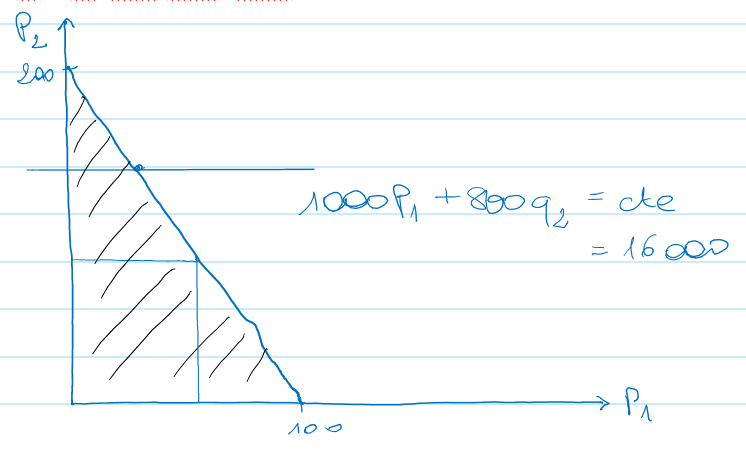 P2
200
1000P1 + 800q2 = cte
= 16000
P1
100